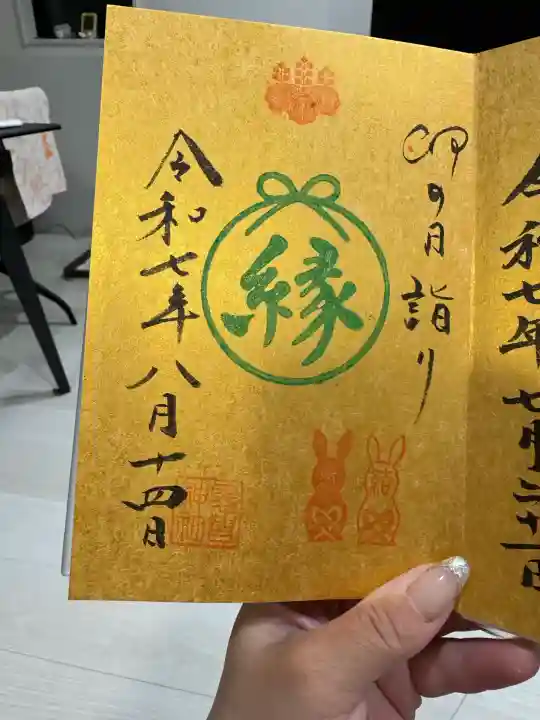 卯の月詣り
縁
令和七年八月十四日
令和七年七月二十一日